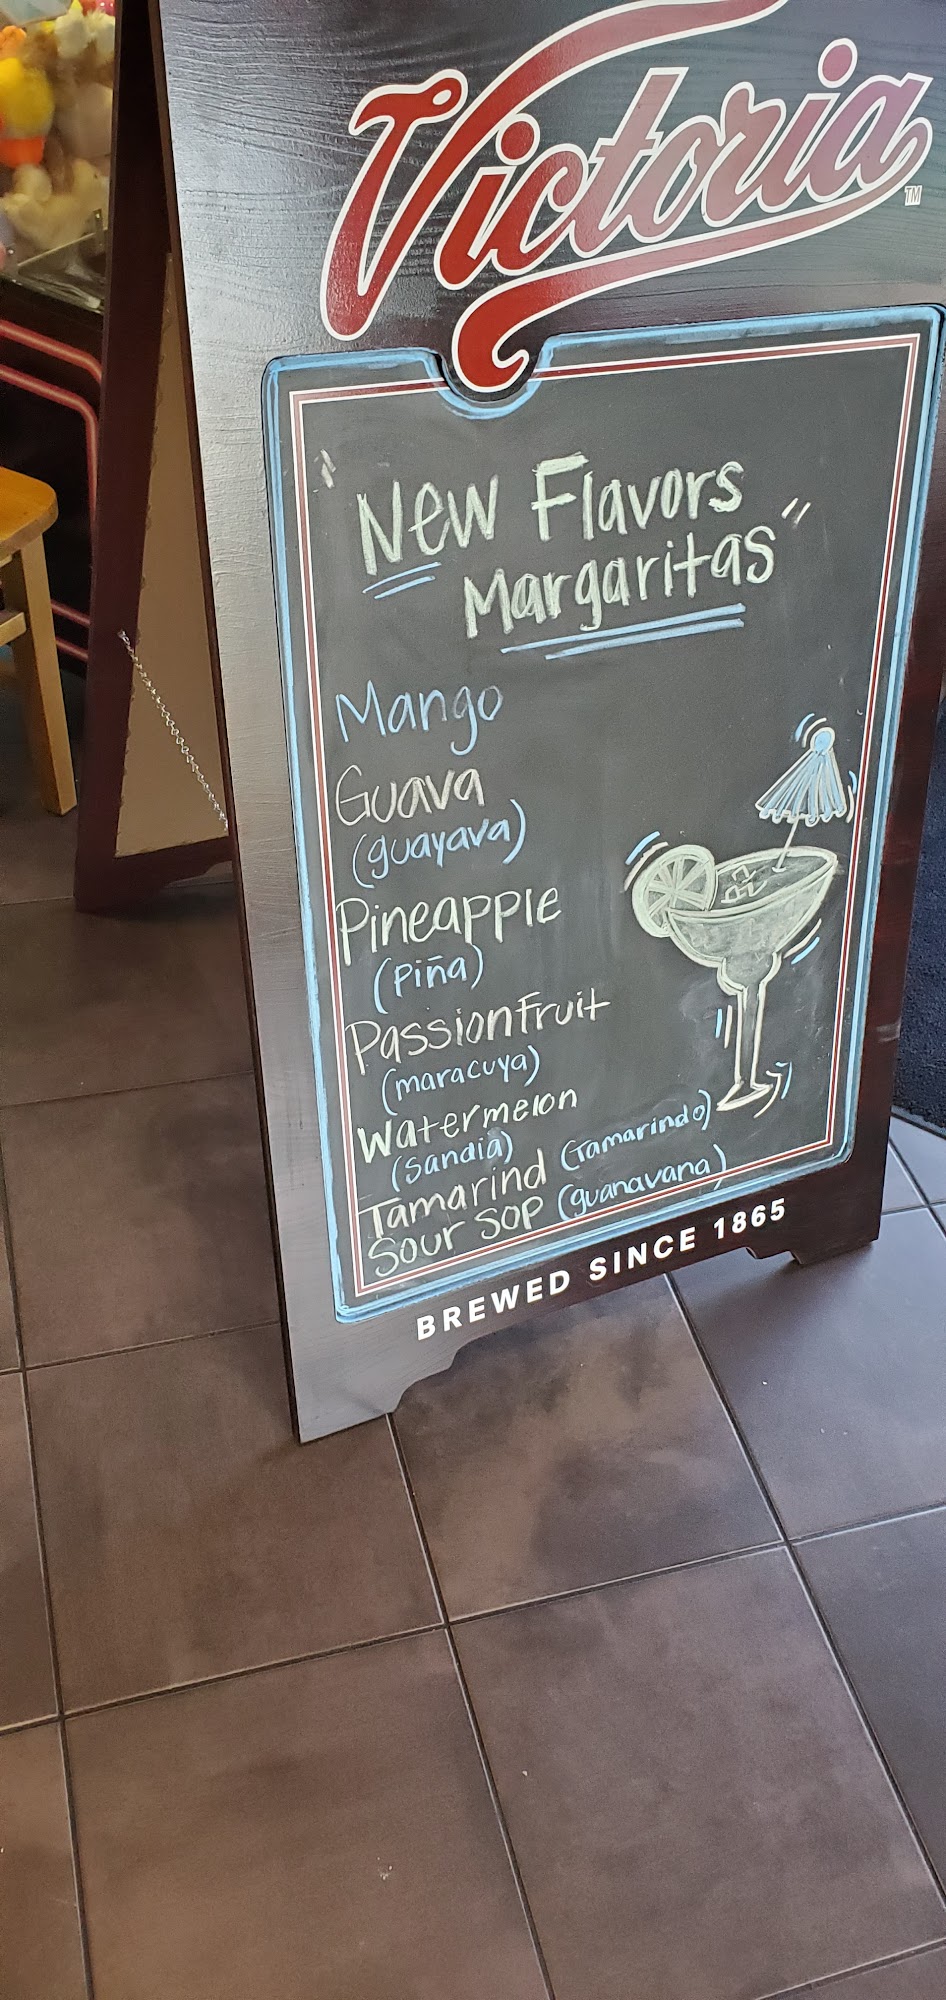 Victoria
TM
"New Flavors
Margaritas"
Mango
Guava
(guayava)
Pineapple
(piña)
Passionfruit
(maracuya)
Watermelon
(sandia)
Tamarind (Tamarindo)
Sour Sop (guanavana)
BREWED SINCE 1865